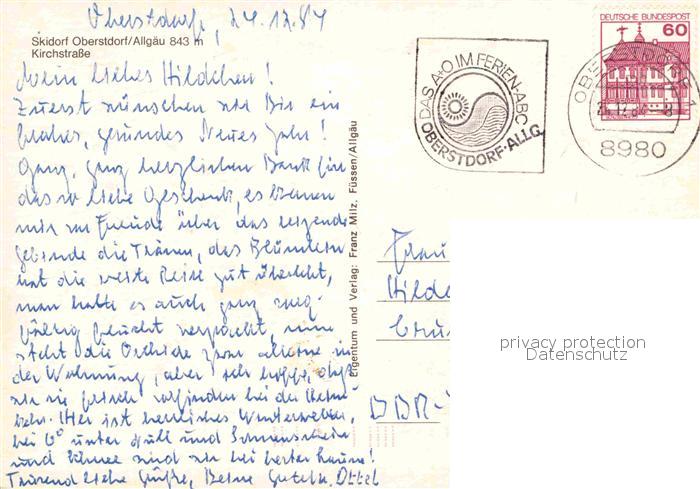 Oberstdorf, 27.12.87
Skidorf Oberstdorf/Allgäu 843 m
Kirchstraße
Mein liebes Hildchen!
Zuerst wünschen wir Dir ein
frohes, gesundes Neues Jahr!
Ganz, ganz herzlichen Dank für
das so liebe Geschenk, es kamen
mir vor Freude über das reizende
Gebinde die Tränen, das Blümlein
hat die weite Reise gut überlebt,
man hatte es auch ganz sorg-
fältig feucht verpackt, nun
steht die Orchidee zwar alleine in
der Wohnung, aber ich hoffe, daß
wir sie frisch vorfinden bei der Heim-
kehr. Hier ist herrliches Winterwetter,
bei 6° unter Null und Sonnenschein
und Schnee sind wir bei bester Laune!
Tausend liebe Grüße, Deine Gutela, Ottel
Eigentum und Verlag: Franz Milz, Füssen/Allgäu
DAS A+O IM FERIEN-ABC
OBERSTDORF·ALLG.
DEUTSCHE BUNDESPOST
60
OBERSTDORF
8980
Frau
Hilde
DDR-
privacy protection
Datenschutz